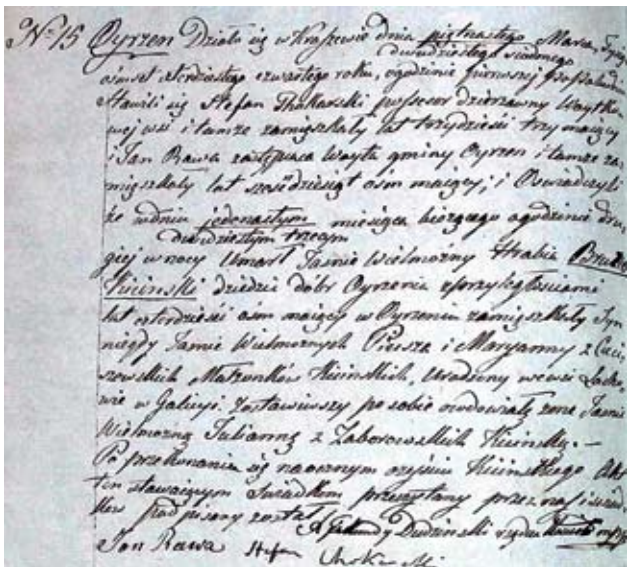 N. 15 Oyrzen Działo się w Kraszewie dnia piętnastego Marca, Tysiąc
dwudziestego siódmego
ośmset czterdziestego czwartego roku, o godzinie pierwszej
Stawili się Stefan possessor dzierżawny
wej wsi i tamże zamięszkały lat trzydzieści trzy mający
i Jan Rawa zastępca Woyta gminy Oyrzen i tamże za-
mięszkały lat sześćdziesiąt ośm mający; i Oświadczyli
że w dniu jedenastym miesiąca bieżącego o godzinie dru-
dwudziestym trzecym
giej w nocy Umarł Jaśnie Wielmożny Hrabia Bruno
Kiciński dziedzic dóbr Oyrzenia z przyległościami
lat czterdzieści ośm mający w Oyrzeniu zamięszkały Syn
niegdy Jaśnie Wielmożnych i Maryanny z Cieci-
szowskich Małżonków Kicińskich, Urodzony we wsi
wie w Galicyi. Zostawiwszy po sobie owdowiałą żonę Jaśnie
Wielmożną Juliannę z Zaborowskich Kicińską. —
Po przekonaniu się naocznym o zejściu Kicińskiego Akt
ten stawaiącym Świadkom przeczytany przez nas i świad-
ków podpisany został. Dudzinski
Jan Rawa Stefan